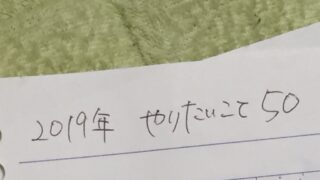 2019年 やりたいこと 50